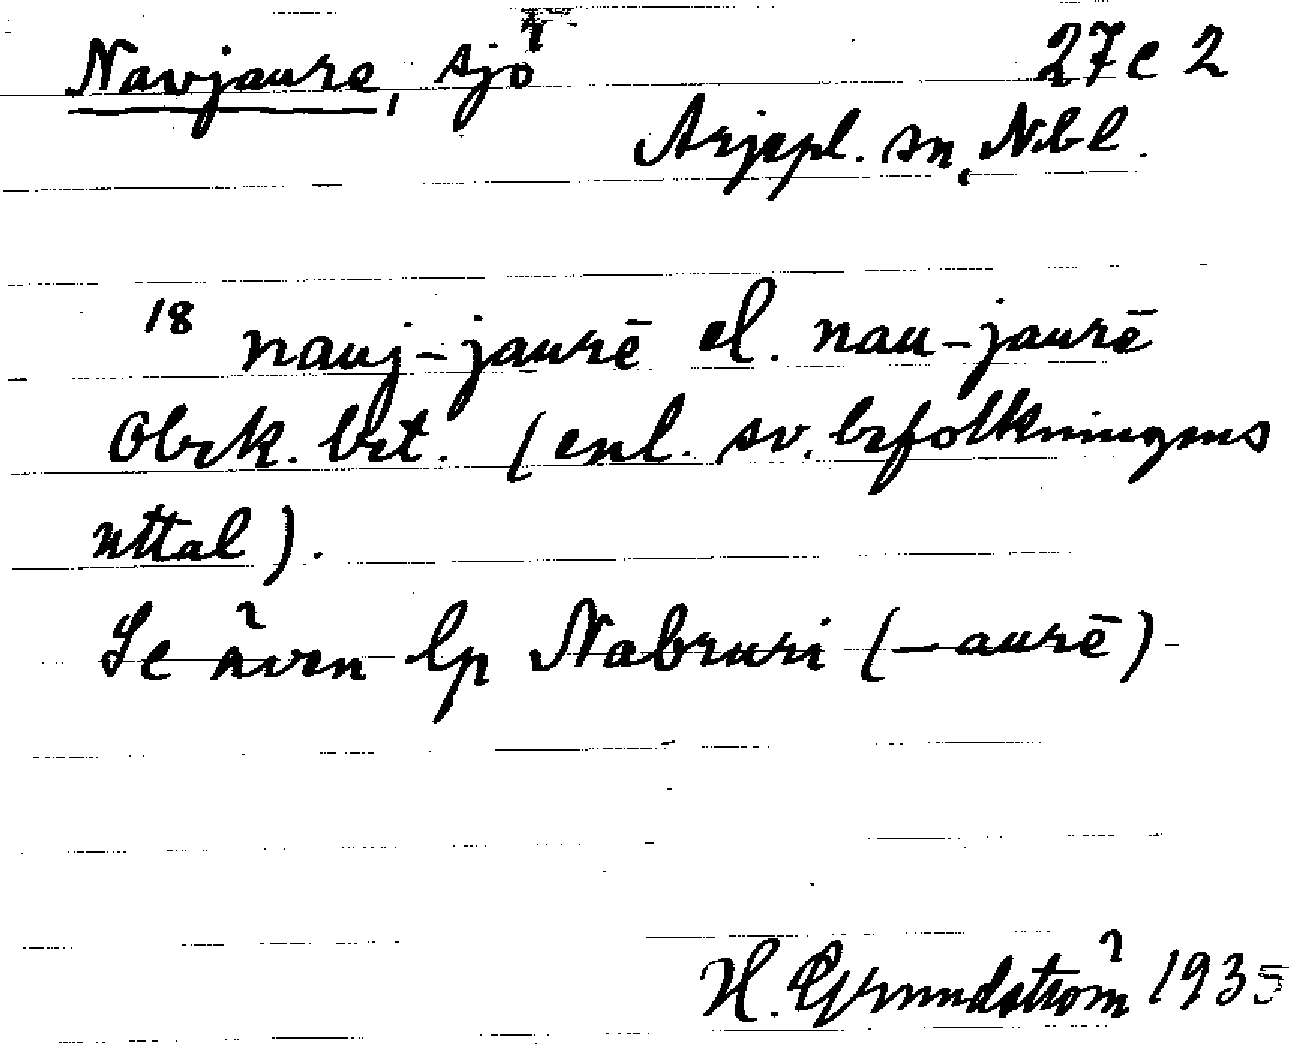 Navjaure, sjö 27c 2
Arjepl. sn, Nbl.
18 nauj-jaurē el. nau-jaurē
Obek. bet. (enl. sv. befolkningens
uttal).
Se även lp Nabruri (-aurē)
H. Grundström 1935